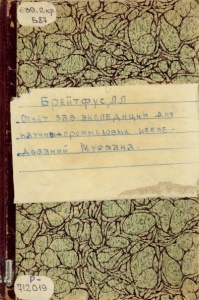 Брейтфус, Л Л
Отчет зав экспедиции для
научно-промысловых иссле-
дований Мурмана.
Р-
712019